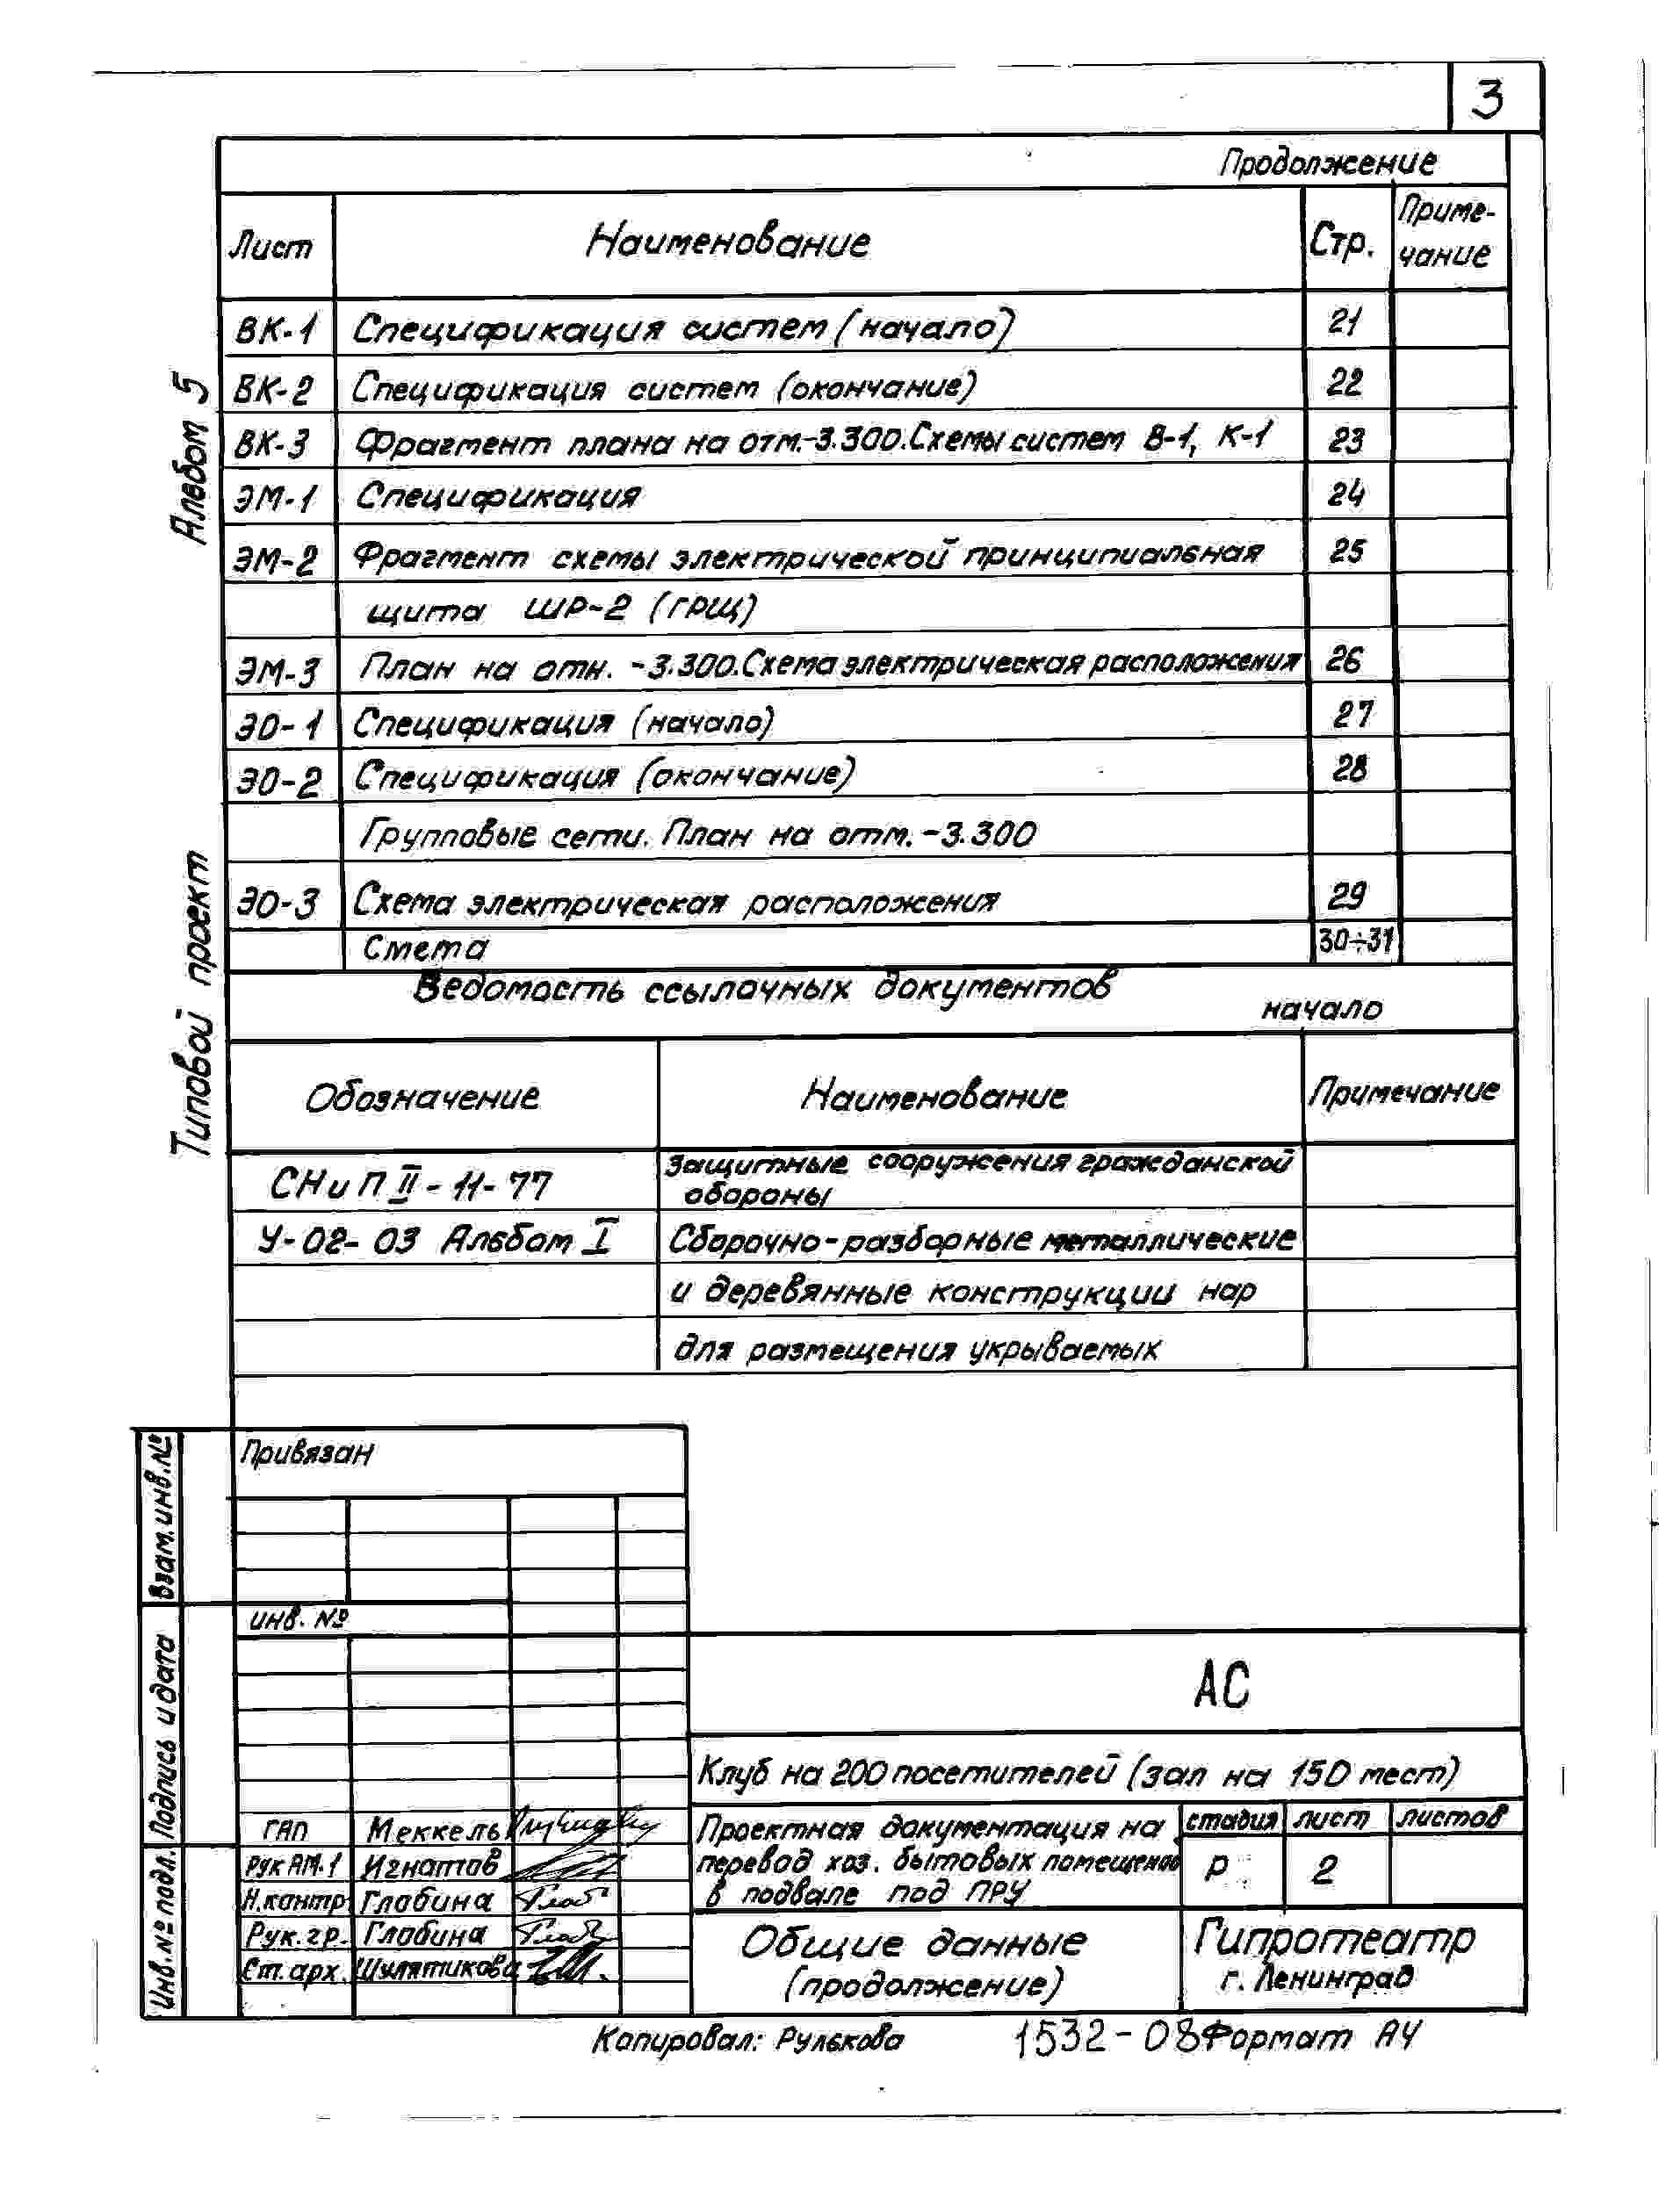 3
Продолжение
Лист Наименование Стр. Приме-
чание
ВК-1 Спецификация систем (начало) 21
ВК-2 Спецификация систем (окончание) 22
ВК-3 Фрагмент плана на отм.-3.300. Схемы систем В-1, К-1 23
ЭМ-1 Спецификация 24
ЭМ-2 Фрагмент схемы электрической принципиальная 25
щита ШР-2 (ГРЩ)
ЭМ-3 План на отн. -3.300. Схема электрическая расположения 26
ЭО-1 Спецификация (начало) 27
ЭО-2 Спецификация (окончание) 28
Групповые сети. План на отм. -3.300
ЭО-3 Схема электрическая расположения 29
Смета 30÷31
Ведомость ссылочных документов
начало
Обозначение Наименование Примечание
СНиП II-11-77 Защитные сооружения гражданской
обороны
У-02-03 Альбом I Сборочно-разборные металлические
и деревянные конструкции нар
для размещения укрываемых
Альбом 5
Типовой проект
Взам.инв.№
Подпись и дата
Инв.№ подл.
Привязан
инв. №
АС
Клуб на 200 посетителей (зал на 150 мест)
Проектная документация на
перевод хоз. бытовых помещений
в подвале под ПРУ
стадия лист листов
Р 2
ГАП Меккель
Рук АМ-1 Игнатов
Н.контр Глобина
Рук.гр. Глобина
Ст.арх. Шулятикова
Общие данные
(продолжение)
Гипротеатр
г. Ленинград
Копировал: Рулькова 1532-08 Формат А4